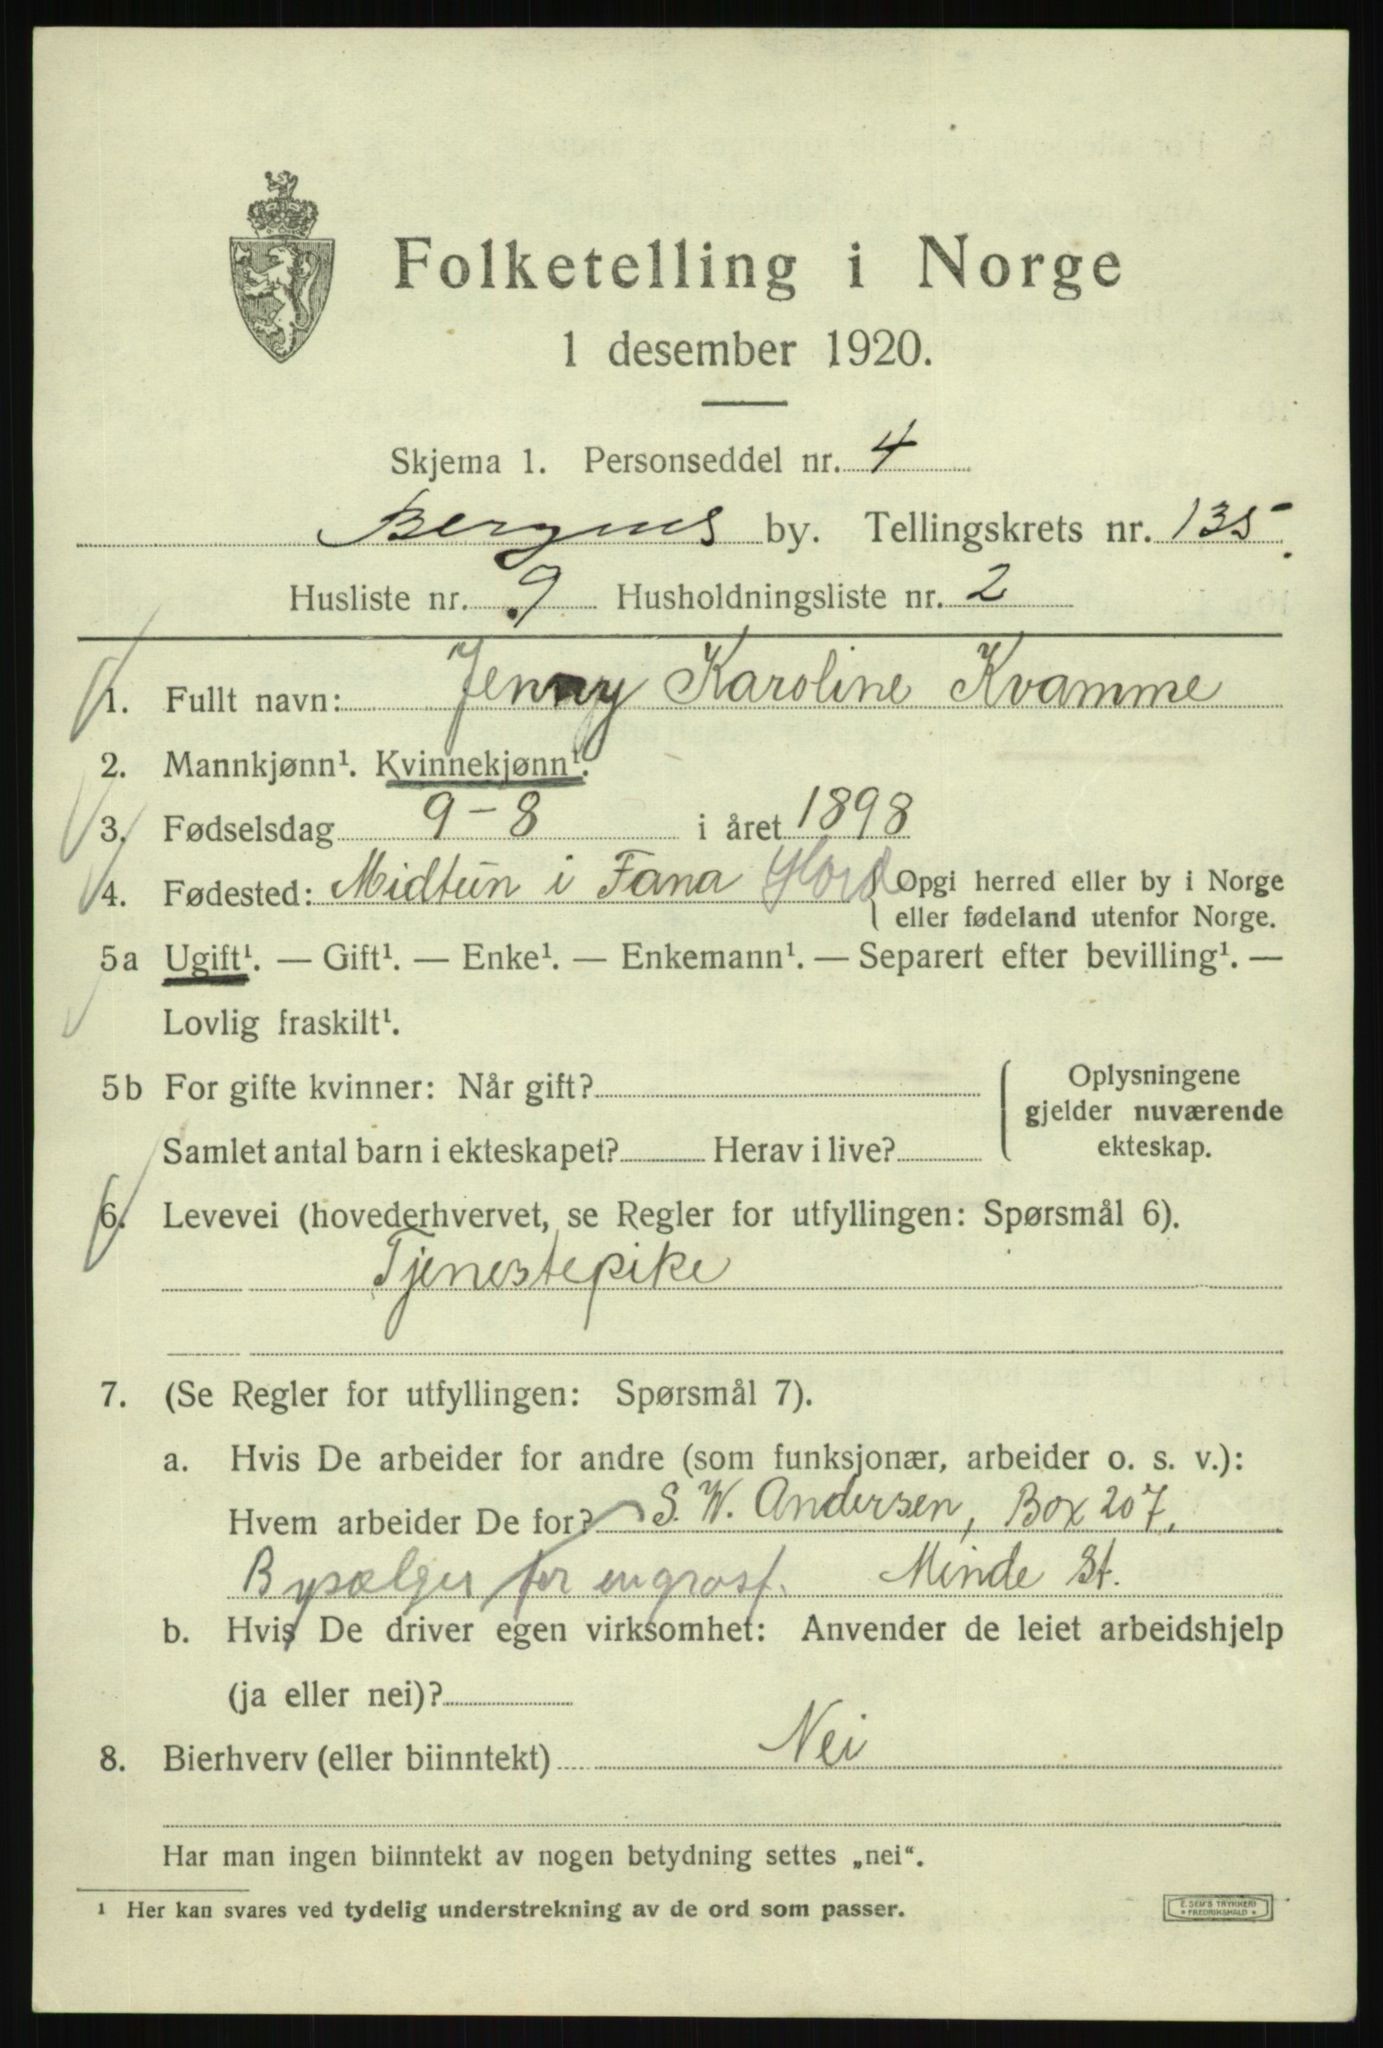 Folketelling i Norge
1 desember 1920.
Skjema 1. Personseddel nr. 4
Bergens by. Tellingskrets nr. 135.
Husliste nr. 9 Husholdningsliste nr. 2
1. Fullt navn: Jenny Karoline Kvamme
2. Mannkjønn¹. Kvinnekjønn¹.
3. Fødselsdag 9-8 i året 1898
4. Fødested: Midtun i Fana Hord { Opgi herred eller by i Norge
eller fødeland utenfor Norge.
5a Ugift¹. — Gift¹. — Enke¹. — Enkemann¹. — Separert efter bevilling¹. —
Lovlig fraskilt¹.
5b For gifte kvinner: Når gift?
Samlet antal barn i ekteskapet? Herav i live?
{ Oplysningene
gjelder nuværende
ekteskap.
6. Levevei (hovederhvervet, se Regler for utfyllingen: Spørsmål 6).
Tjenestepike
7. (Se Regler for utfyllingen: Spørsmål 7).
a. Hvis De arbeider for andre (som funksjonær, arbeider o. s. v.):
Hvem arbeider De for? S. W. Andersen, Box 207,
Bysælger for engrosf. Minde St.
b. Hvis De driver egen virksomhet: Anvender de leiet arbeidshjelp
(ja eller nei)?
8. Bierhverv (eller biinntekt) Nei
Har man ingen biinntekt av nogen betydning settes „nei“.
¹ Her kan svares ved tydelig understrekning av de ord som passer.
E. SEM'S TRYKKERI
* FREDRIKSHALD *